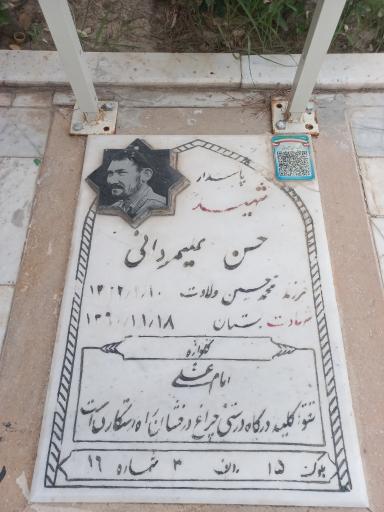 پاسدار
شهید
حسن میمردانی
فرزند محمدحسین ولادت ۱۳۰۲/۱/۱۰
شهادت بستان ۱۳۶۰/۱۱/۱۸
گلواژه
امام علی
تقوا کلید درگاه درستی چراغ درخشان راه رستگاری است
بلوک ۱۵ ردیف ۳ شماره ۱۶